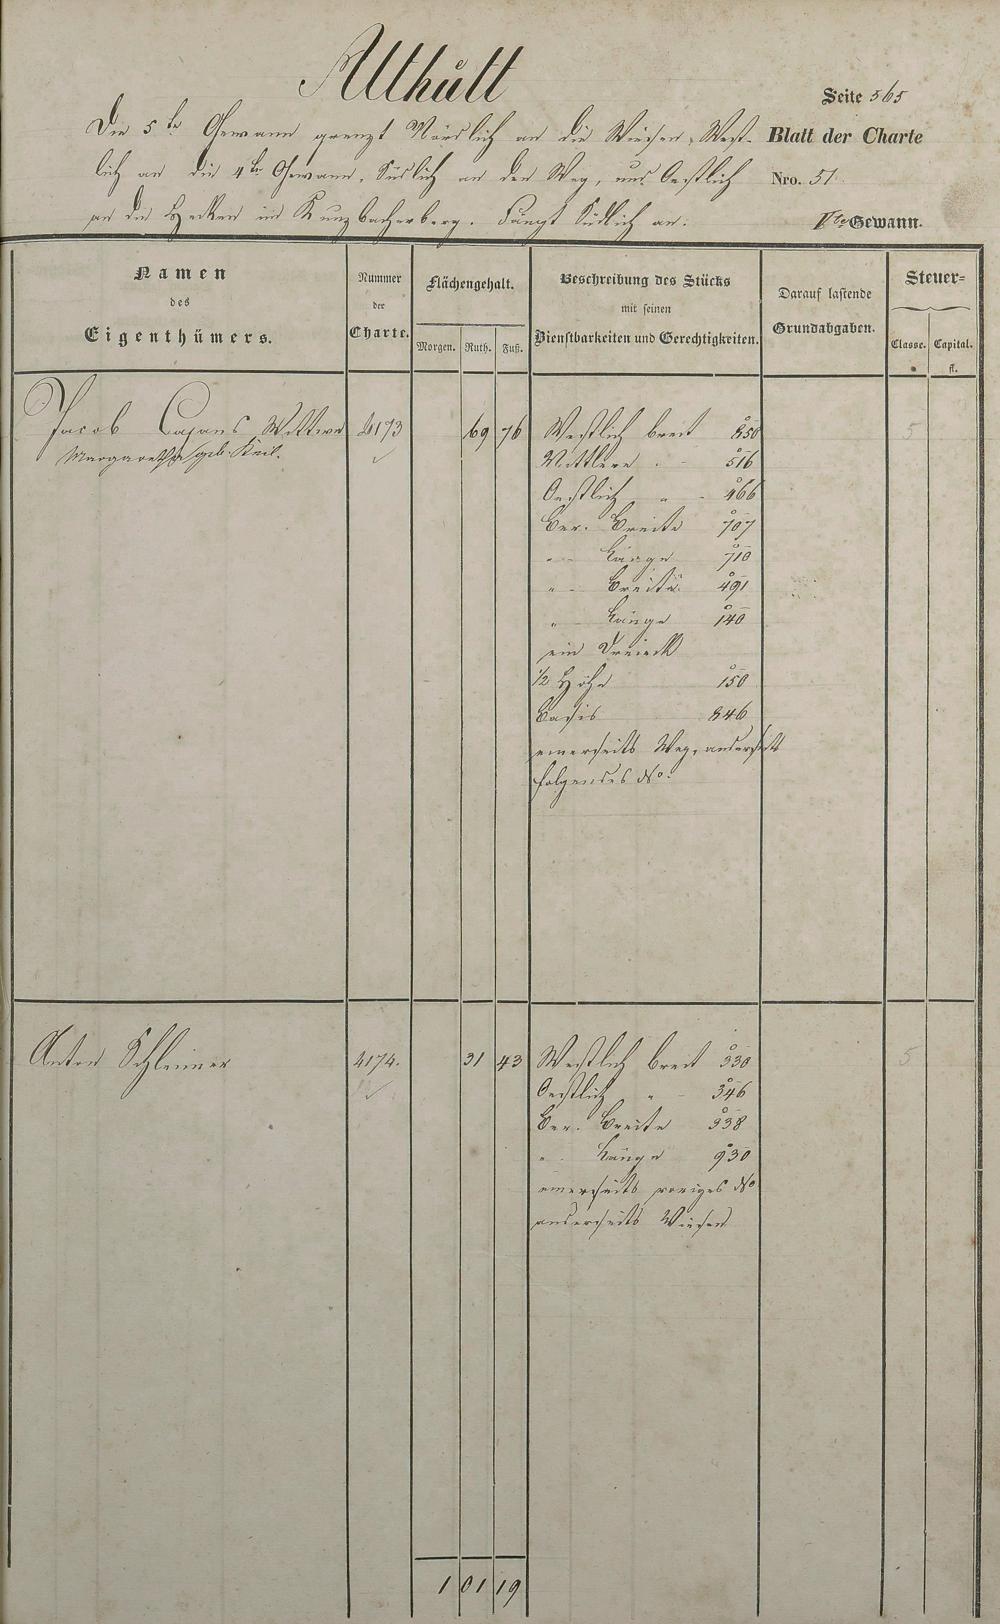 Althütt
Seite 565
Die 5te Gewann grenzt Nördlich an die Wiesen, West-
Blatt der Charte
lich an die 4te Gewann, Südlich an den Weg, und Oestlich
Nro. 51
an die Hecken im Kunzbacherberg. Fängt Südlich an.
Vte Gewann.
Namen des Eigenthümers.
Nummer der Charte.
Flächengehalt.
Morgen. Ruth. Fuß.
Beschreibung des Stücks
mit seinen
Dienstbarkeiten und Gerechtigkeiten.
Darauf lastende
Grundabgaben.
Steuer-
Classe. Capital.
fl.
Jacob Cajans Wittwe 4173 69 76 Westlich breit 850 5
Margaretha geb. Keil.
Mittlere " 516
Oestlich " 466
Ber. Breite 707
" Länge 710
" Breite 491
" Länge 140
ein Dreieck
1/2 Höhe 150
Basis 846
einerseits Weg, anderseits
folgendes No.
Anton Schleimer 4174. 31 43 Westlich breit 330 5
Oestlich " 346
Ber. Breite 338
" Länge 930
einerseits voriges No
anderseits Wiesen
1 01 19